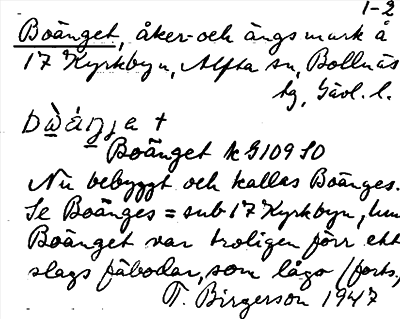 1-2
Boänget, åker- och ängsmark å
17 Kyrkbyn, Alfta sn, Bollnäs
tg, Gävl. l.
bẁáŋja +
Boänget kG109 SO
Nu bebyggt och kallas Boänges.
Se Boänges = sub 17 Kyrkbyn, hm
Boänget var troligen förr ett
slags fäbodar, som lågo (forts.,
T. Birgerson 1947